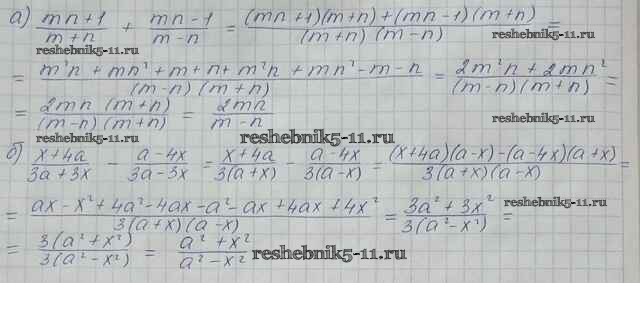 а) (mn+1)/(m+n) + (mn-1)/(m-n) = ((mn+1)(m+n)+(mn-1)(m+n))/((m+n)(m-n)) =
reshebnik5-11.ru reshebnik5-11.ru
= (m²n + mn² + m + n + m²n + mn² - m - n)/((m-n)(m+n)) = (2m²n + 2mn²)/((m-n)(m+n)) =
= (2mn(m+n))/((m-n)(m+n)) = 2mn/(m-n)
reshebnik5-11.ru
reshebnik5-11.ru reshebnik5-11.ru
б) (x+4a)/(3a+3x) - (a-4x)/(3a-3x) = (x+4a)/(3(a+x)) - (a-4x)/(3(a-x)) = ((x+4a)(a-x)-(a-4x)(a+x))/(3(a+x)(a-x)) =
= (ax-x²+4a²-4ax-a²-ax+4ax+4x²)/(3(a+x)(a-x)) = (3a²+3x²)/(3(a²-x²)) =
reshebnik5-11.ru
= (3(a²+x²))/(3(a²-x²)) = (a²+x²)/(a²-x²)
reshebnik5-11.ru